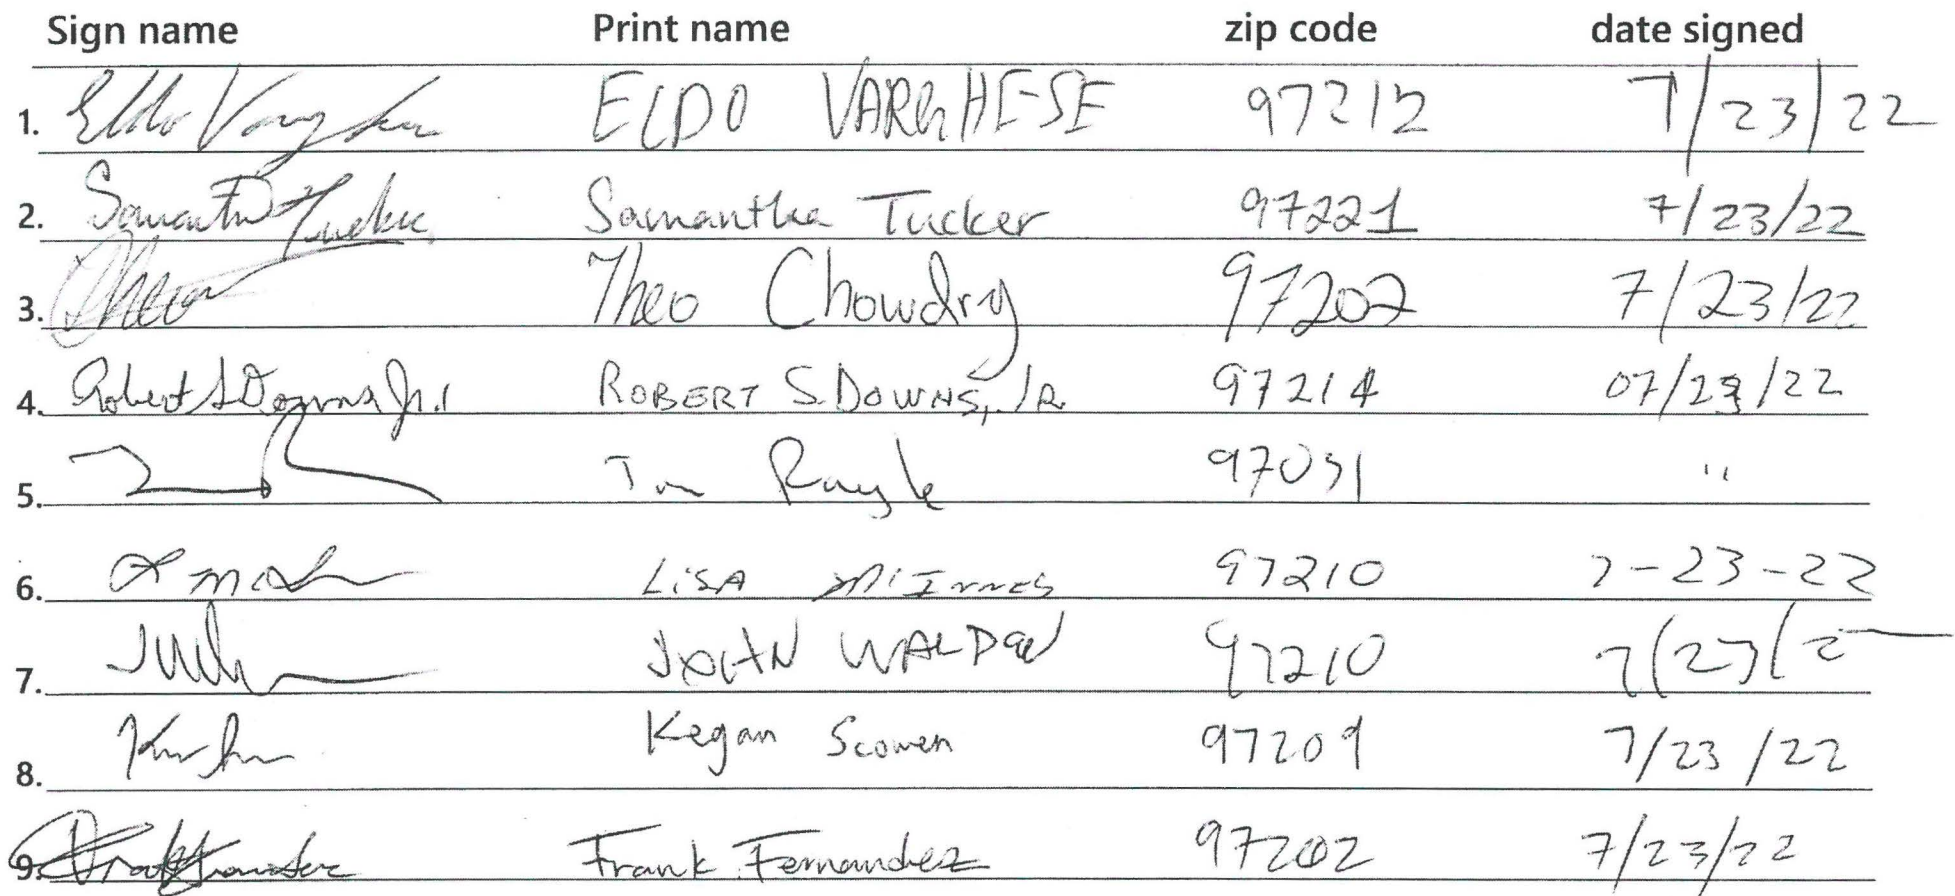 Sign name Print name zip code date signed
1. Eldo Varghese ELDO VARGHESE 97212 7/23/22
2. Samantha Tucker Samantha Tucker 97221 7/23/22
3. Theo Theo Chowdry 97202 7/23/22
4. Robert S Downs, Jr. ROBERT S. DOWNS, JR. 97214 07/23/22
5. Tom Rayle 97031 "
6. LiSA McInnes 97210 7-23-22
7. JOHN WALDEN 97210 7/23/2
8. Kegan Scowen 97209 7/23/22
9. Frank Fernandez 97202 7/23/22